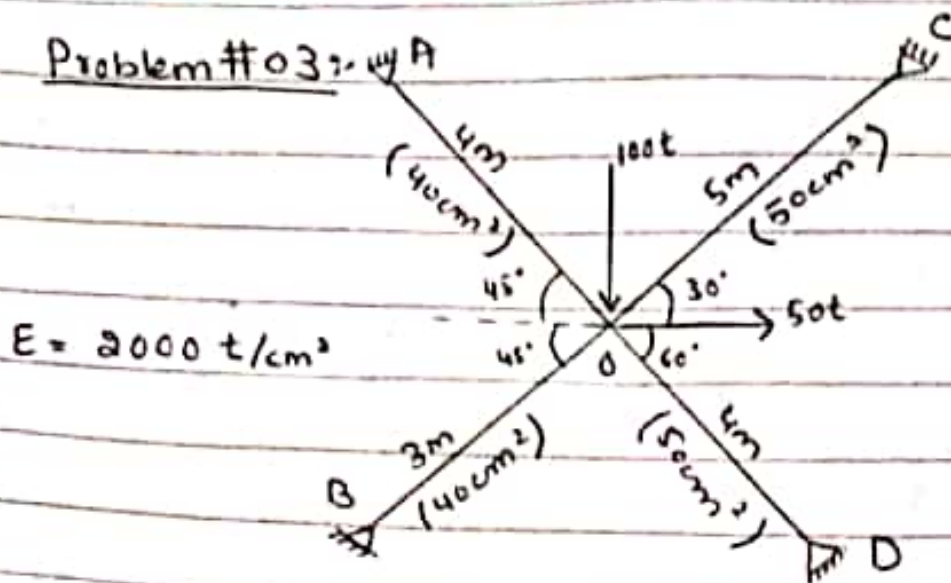 Problem #03:- A
C
4m
(40cm²)
100t
5m
(50cm²)
45°
30°
50t
E = 2000 t/cm²
45°
O
60°
3m
(40cm²)
4m
(50cm²)
B
D